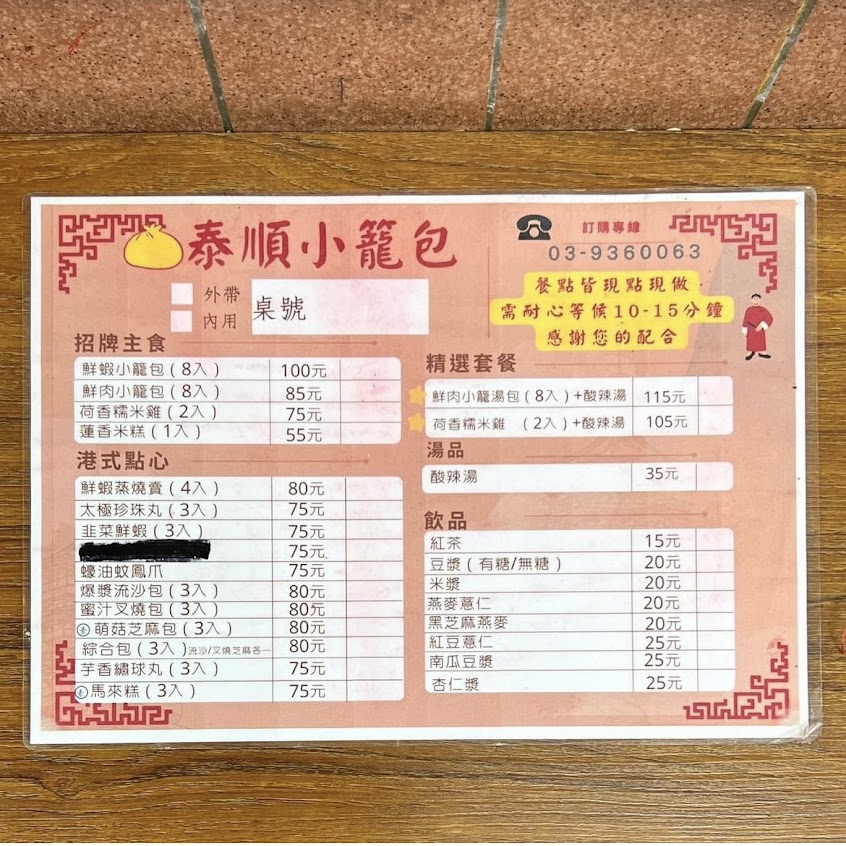 泰順小籠包
訂購專線
03-9360063
外帶
內用
桌號
餐點皆現點現做
需耐心等候10-15分鐘
感謝您的配合
招牌主食
鮮蝦小籠包(8入) 100元
鮮肉小籠包(8入) 85元
荷香糯米雞(2入) 75元
蓮香米糕(1入) 55元
港式點心
鮮蝦蒸燒賣(4入) 80元
太極珍珠丸(3入) 75元
韭菜鮮蝦(3入) 75元
75元
蠔油蚊鳳爪 75元
爆漿流沙包(3入) 80元
蜜汁叉燒包(3入) 80元
萌菇芝麻包(3入) 80元
綜合包(3入)流沙/叉燒芝麻各一 80元
芋香繡球丸(3入) 75元
馬來糕(3入) 75元
精選套餐
鮮肉小籠湯包(8入)+酸辣湯 115元
荷香糯米雞 (2入)+酸辣湯 105元
湯品
酸辣湯 35元
飲品
紅茶 15元
豆漿(有糖/無糖) 20元
米漿 20元
燕麥薏仁 20元
黑芝麻燕麥 20元
紅豆薏仁 25元
南瓜豆漿 25元
杏仁漿 25元